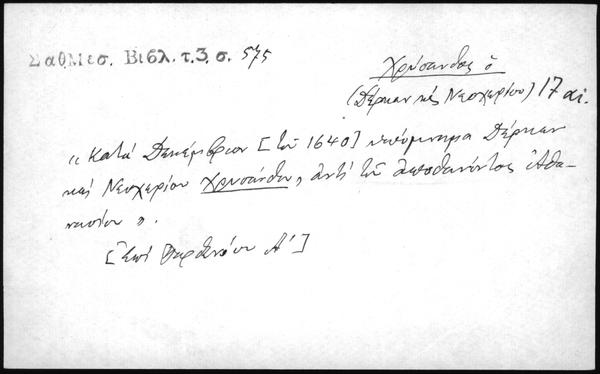 Σαθ. Μεσ. Βιβλ. τ. 3. σ. 575
Χρύσανθος ὁ
(Δέρκων καὶ Νεοχωρίου) 17 αἰ.
„ Κατὰ Δεκέμβριον [τοῦ 1640] ὑπόμνημα Δέρκων
καὶ Νεοχωρίου Χρυσάνθου, ἀντὶ τοῦ ἀποθανόντος Ἀθα-
νασίου „.
[Ἐπὶ Παρθενίου Α΄]